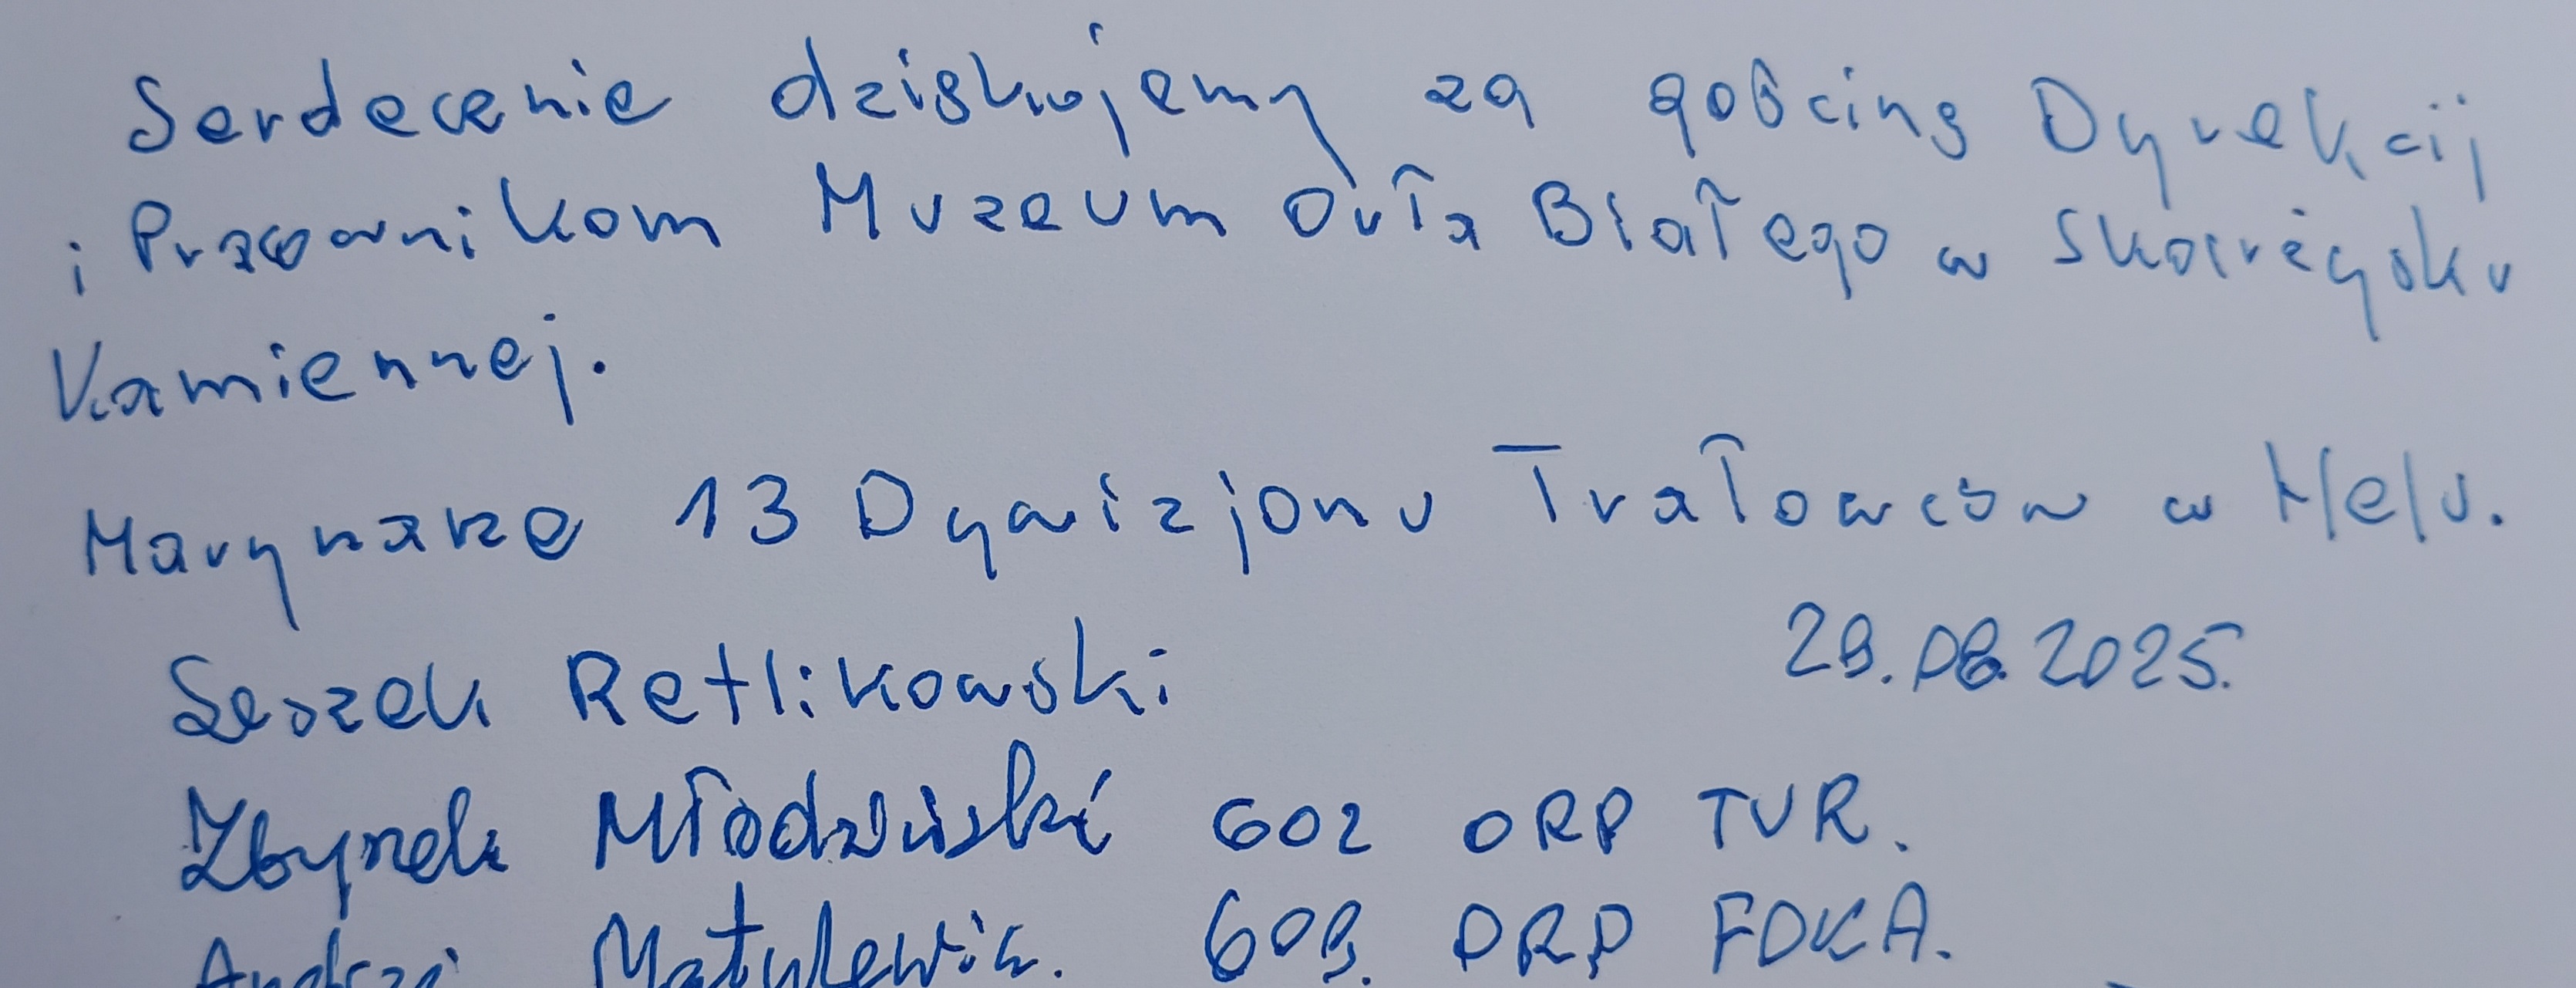 Serdecznie dziękujemy za gościnę Dyrekcji
i Pracownikom Muzeum Orła Białego w Skarżysku
Kamiennej.
Marynarze 13 Dywizjonu Trałowców w Helu.
28.08.2025.
Leszek Retlikowski
Zbynek Młodziński 602 ORP TUR.
Andrzej Matulewicz. 609. ORP FOKA.